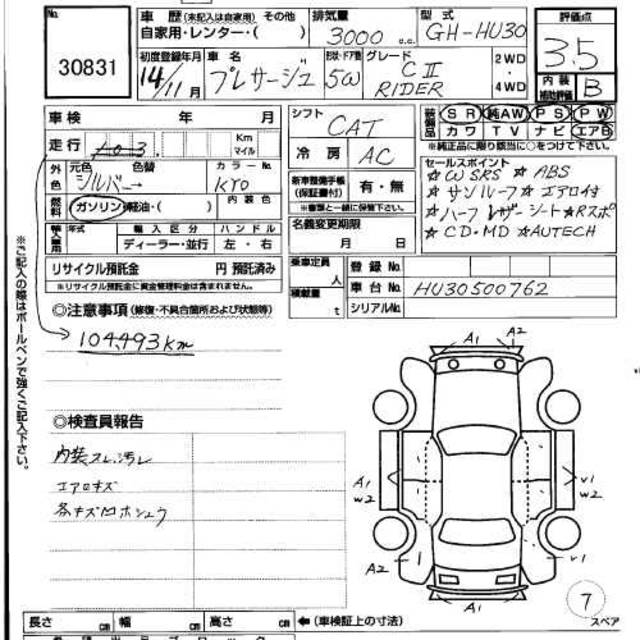 No.
30831
車歴(未記入は自家用) その他
自家用・レンター・( )
排気量
3000 c.c.
型式
GH-HU30
評価点
3.5
初度登録年月
14/11月
車名
プレサージュ
形状・ドア数
5W
グレード
CⅡ
RIDER
2WD
・
4WD
内装
補助評価
B
車検 年 月
走行
Km
マイル
シフト
CAT
冷房
AC
装備品
SR 純AW PS PW
カワ TV ナビ エアB
*純正品に限り該当に○をつけて下さい。
外色
元色 色替
シルバー→
カラーNo.
KY0
燃料
ガソリン・軽油・( )
内装色
新車整備手帳
(保証書付)
有・無
*書類と一緒に保管下さい。
セールスポイント
☆W SRS ☆ABS
☆サンルーフ ☆エアロ付
☆ハーフレザーシート☆Rスポ
☆CD・MD ☆AUTECH
輸入車用
年式
輸入区分
ハンドル
ディーラー・並行
左・右
名義変更期限
月 日
リサイクル預託金 円 預託済み
*リサイクル預託金に資金管理料金は含まれません。
乗車定員
人
積載量
t
登録No.
車台No.
HU30500762
シリアルNo.
◎注意事項(修復・不具合箇所および状態等)
104,493km
※ご記入の際はボールペンで強くご記入下さい。
◎検査員報告
内装スレ、汚レ
エアロキズ
各キズ凹ホシュウ
A1
A2
A1
W2
V1
W2
A2
V1
A1
7
スペア
長さ cm
幅 cm
高さ cm
←(車検証上の寸法)